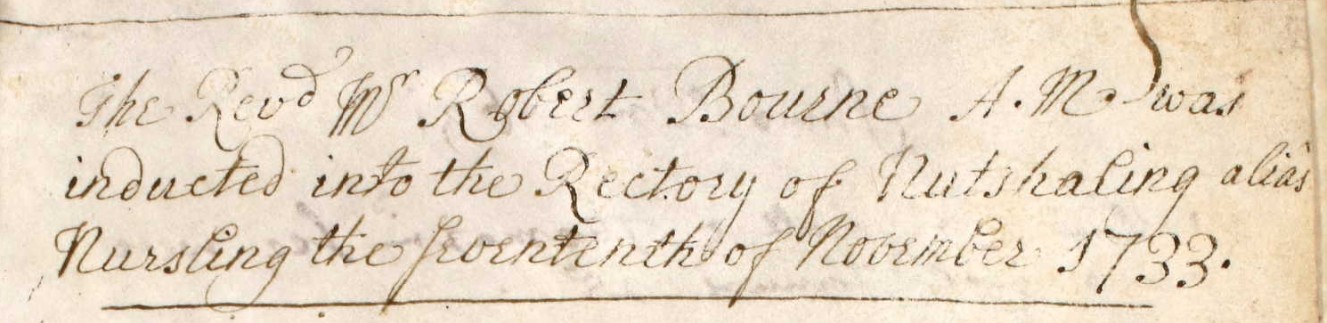 The Revd Mr Robert Bourne A.M. was
inducted into the Rectory of Nutshaling alias
Nursling the sevententh of November 1733.